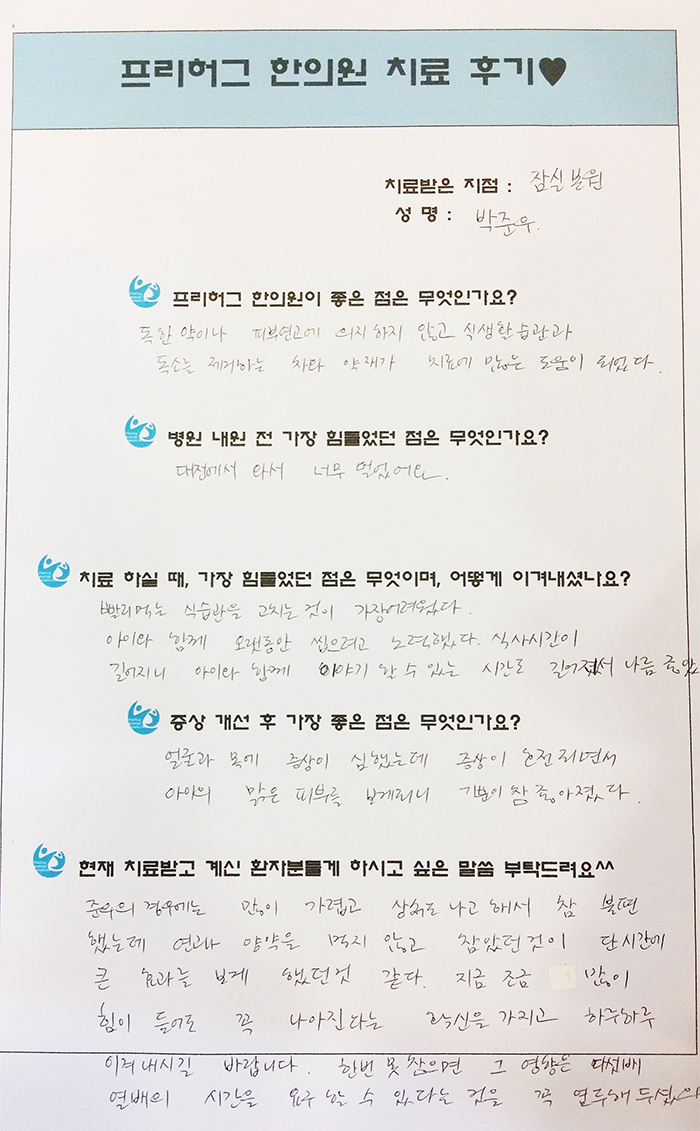 프리허그 한의원 치료 후기♥
치료받은 지점 : 잠실본원
성 명 : 박준우.
프리허그 한의원이 좋은 점은 무엇인가요?
독한 약이나 피부연고에 의지하지 않고 식생활습관과
독소를 제거하는 차와 약재가 치료에 많은 도움이 되었다.
병원 내원 전 가장 힘들었던 점은 무엇인가요?
대전에서 와서 너무 멀었어요.
치료 하실 때, 가장 힘들었던 점은 무엇이며, 어떻게 이겨내셨나요?
빨리먹는 식습관을 고치는것이 가장어려웠다.
아이와 함께 오랫동안 씹으려고 노력했다. 식사시간이
길어지니 아이와 함께 이야기 할 수 있는 시간도 길어졌서 나름 좋았
증상 개선 후 가장 좋은 점은 무엇인가요?
얼굴과 목에 증상이 심했는데 증상이 호전되면서
아이의 맑은 피부를 보게되니 기분이 참 좋아졌다.
현재 치료받고 계신 환자분들게 하시고 싶은 말씀 부탁드려요^^
준우의 경우에는 많이 가렵고 상처도 나고 해서 참 불편
했는데 연고나 양약을 먹지 않고 참았던것이 단시간에
큰 효과를 보게 했던것 같다. 지금 조금 많이
힘이 들어도 꼭 나아진다는 확신을 가지고 하루하루
이겨내시길 바랍니다. 한번 못참으면 그 영향은 다섯배
열배의 시간을 요구 할 수 있다는 것을 꼭 염두해 두셨으